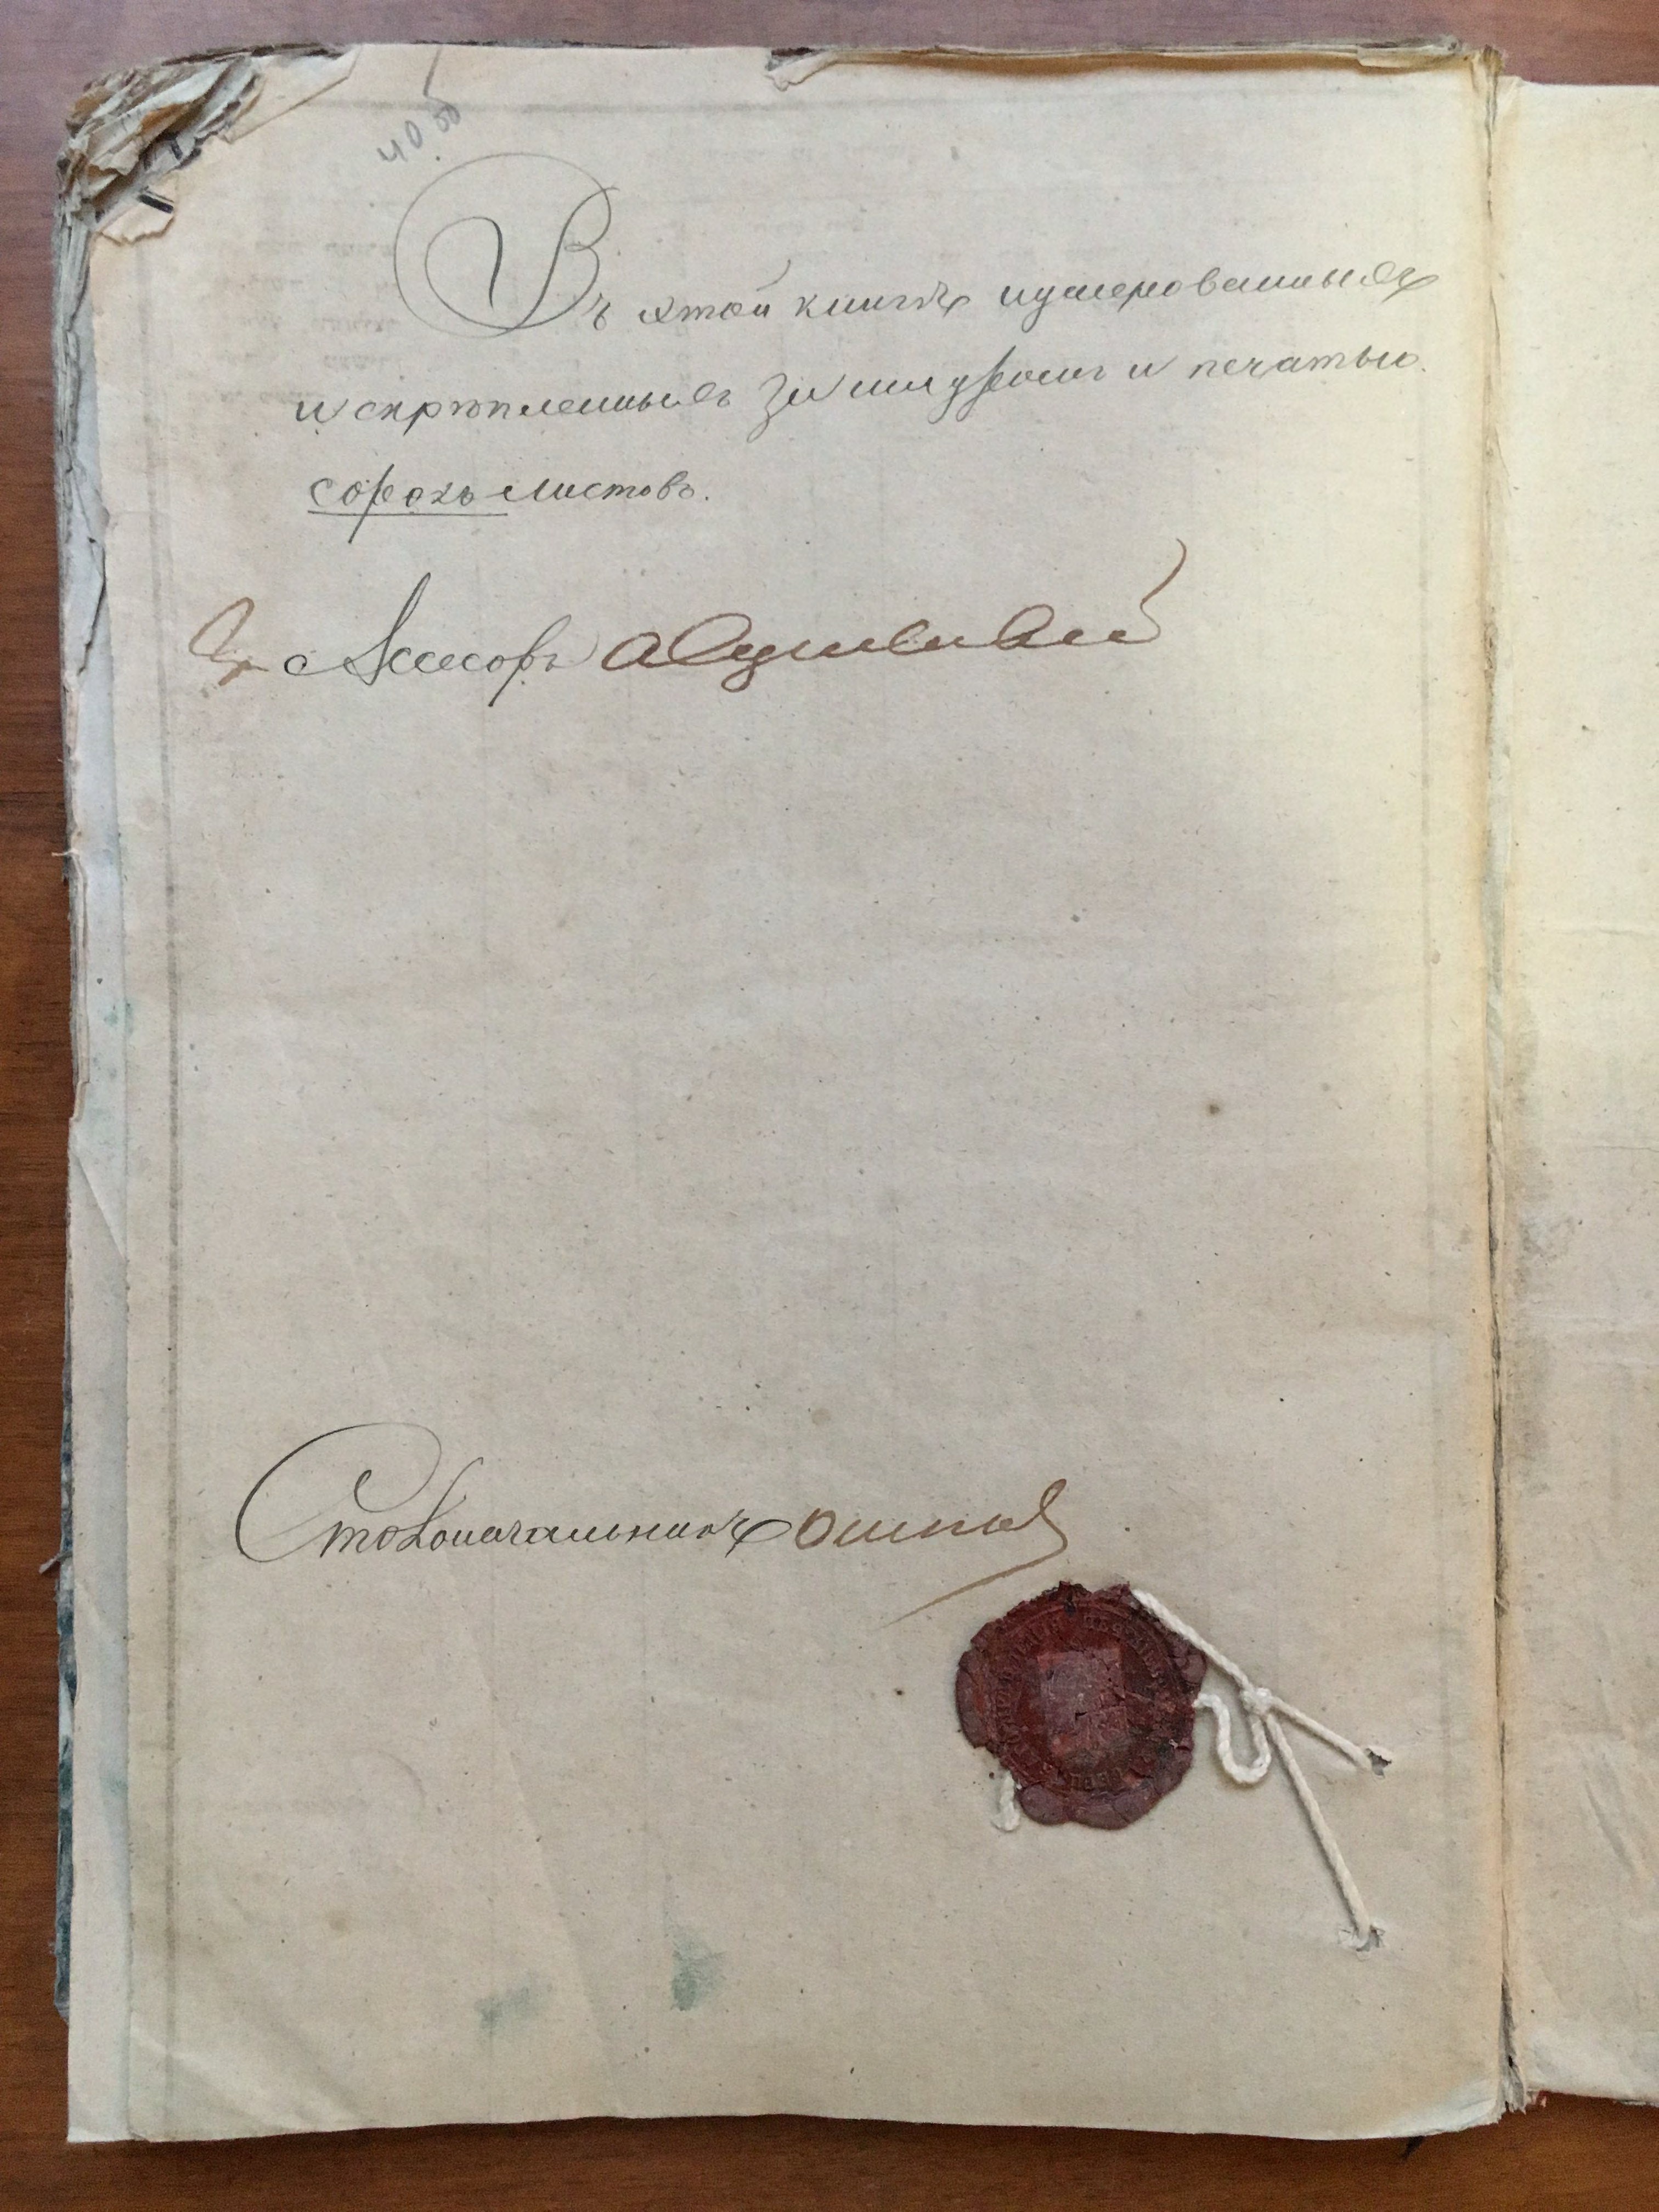 40 об
Въ этой книгѣ нумерованныхъ
и скрѣпленныхъ за шнуромъ и печатью
сорокъ листовъ.
За Ассесоръ
Столоначальникъ Осипов